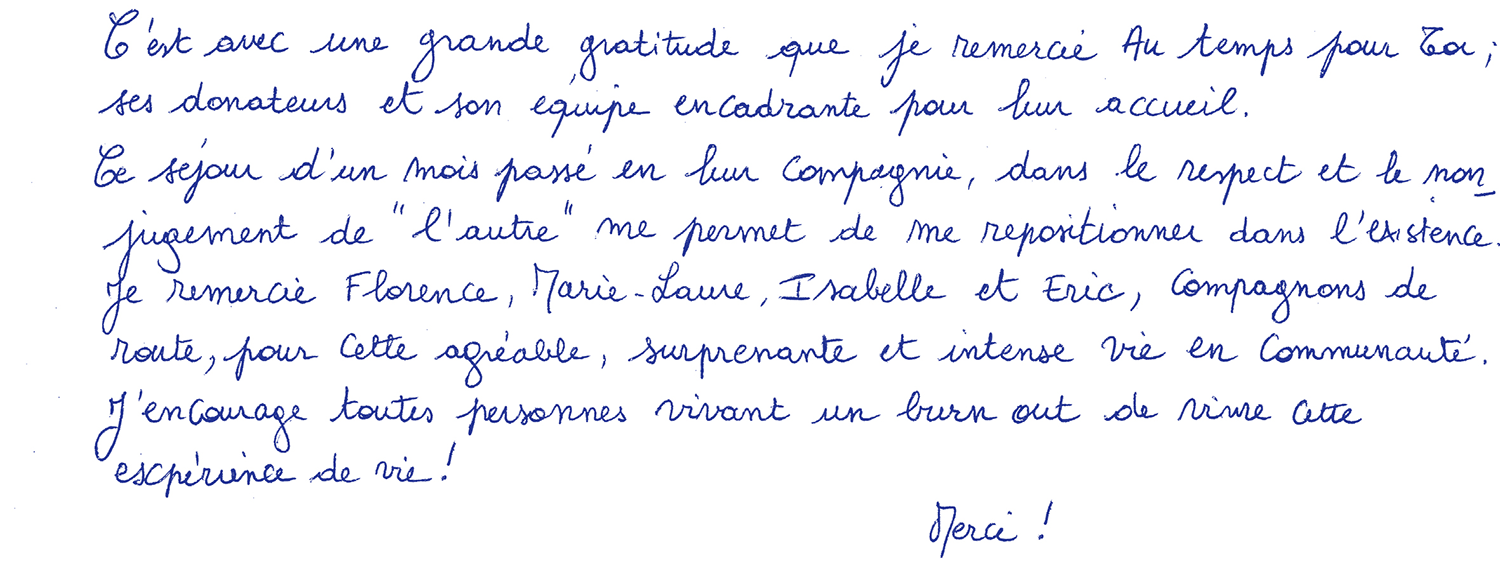 C'est avec une grande gratitude que je remercie Au temps pour Toi ;
ses donateurs et son équipe encadrante pour leur accueil.
Ce séjour d'un mois passé en leur compagnie, dans le respect et le non_
jugement de "l'autre" me permet de me repositionner dans l'existence.
Je remercie Florence, Marie-Laure, Isabelle et Eric, compagnons de
route, pour cette agréable, surprenante et intense vie en communauté.
J'encourage toutes personnes vivant un burn out de vivre cette
expérience de vie !
Merci !